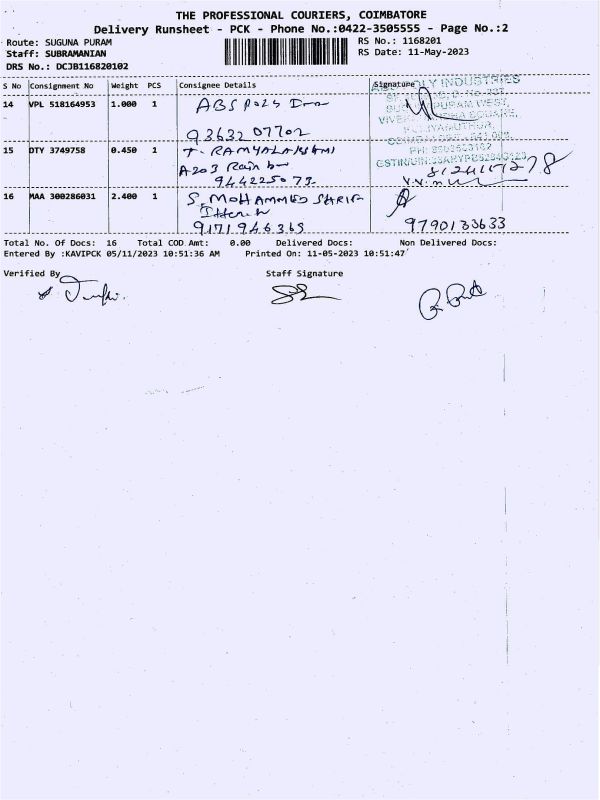 THE PROFESSIONAL COURIERS, COIMBATORE
Delivery Runsheet - PCK - Phone No.:0422-3505555 - Page No.:2
Route: SUGUNA PURAM RS No.: 1168201
Staff: SUBRAMANIAN RS Date: 11-May-2023
DRS No.: DCJB116820102
S No Consignment No Weight PCS Consignee Details Signature
14 VPL 518164953 1.000 1 ABS
93632 07702
15 DTY 3749758 0.450 1 T. RAMYALAKSHMI
A203 Rain
944225073
8124117278
16 MAA 300286031 2.400 1 S. MOHAMMED SHARIF
9171946365 9790133633
Total No. Of Docs: 16 Total COD Amt: 0.00 Delivered Docs: Non Delivered Docs:
Entered By :KAVIPCK 05/11/2023 10:51:36 AM Printed On: 11-05-2023 10:51:47
Verified By Staff Signature